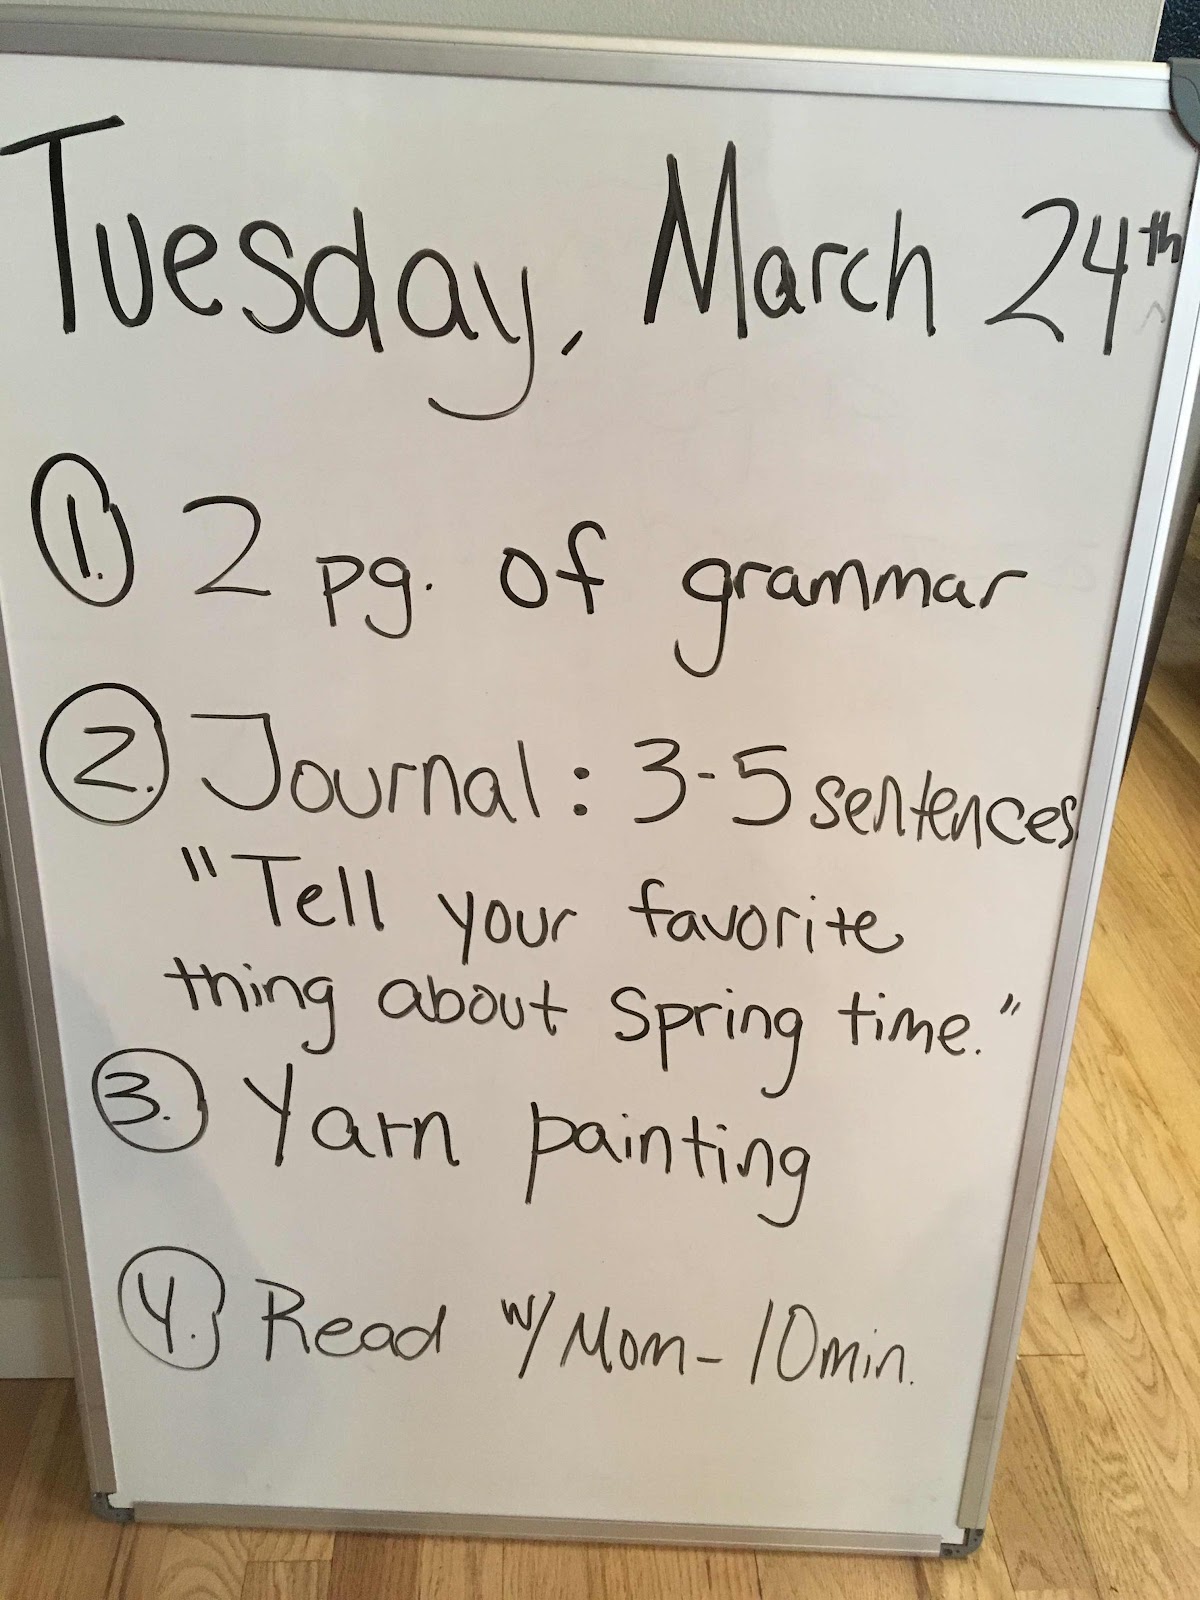 Tuesday, March 24th
1. 2 pg. of grammar
2. Journal: 3-5 sentences
"Tell your favorite
thing about Spring time."
3. Yarn painting
4. Read w/ Mom - 10 min.